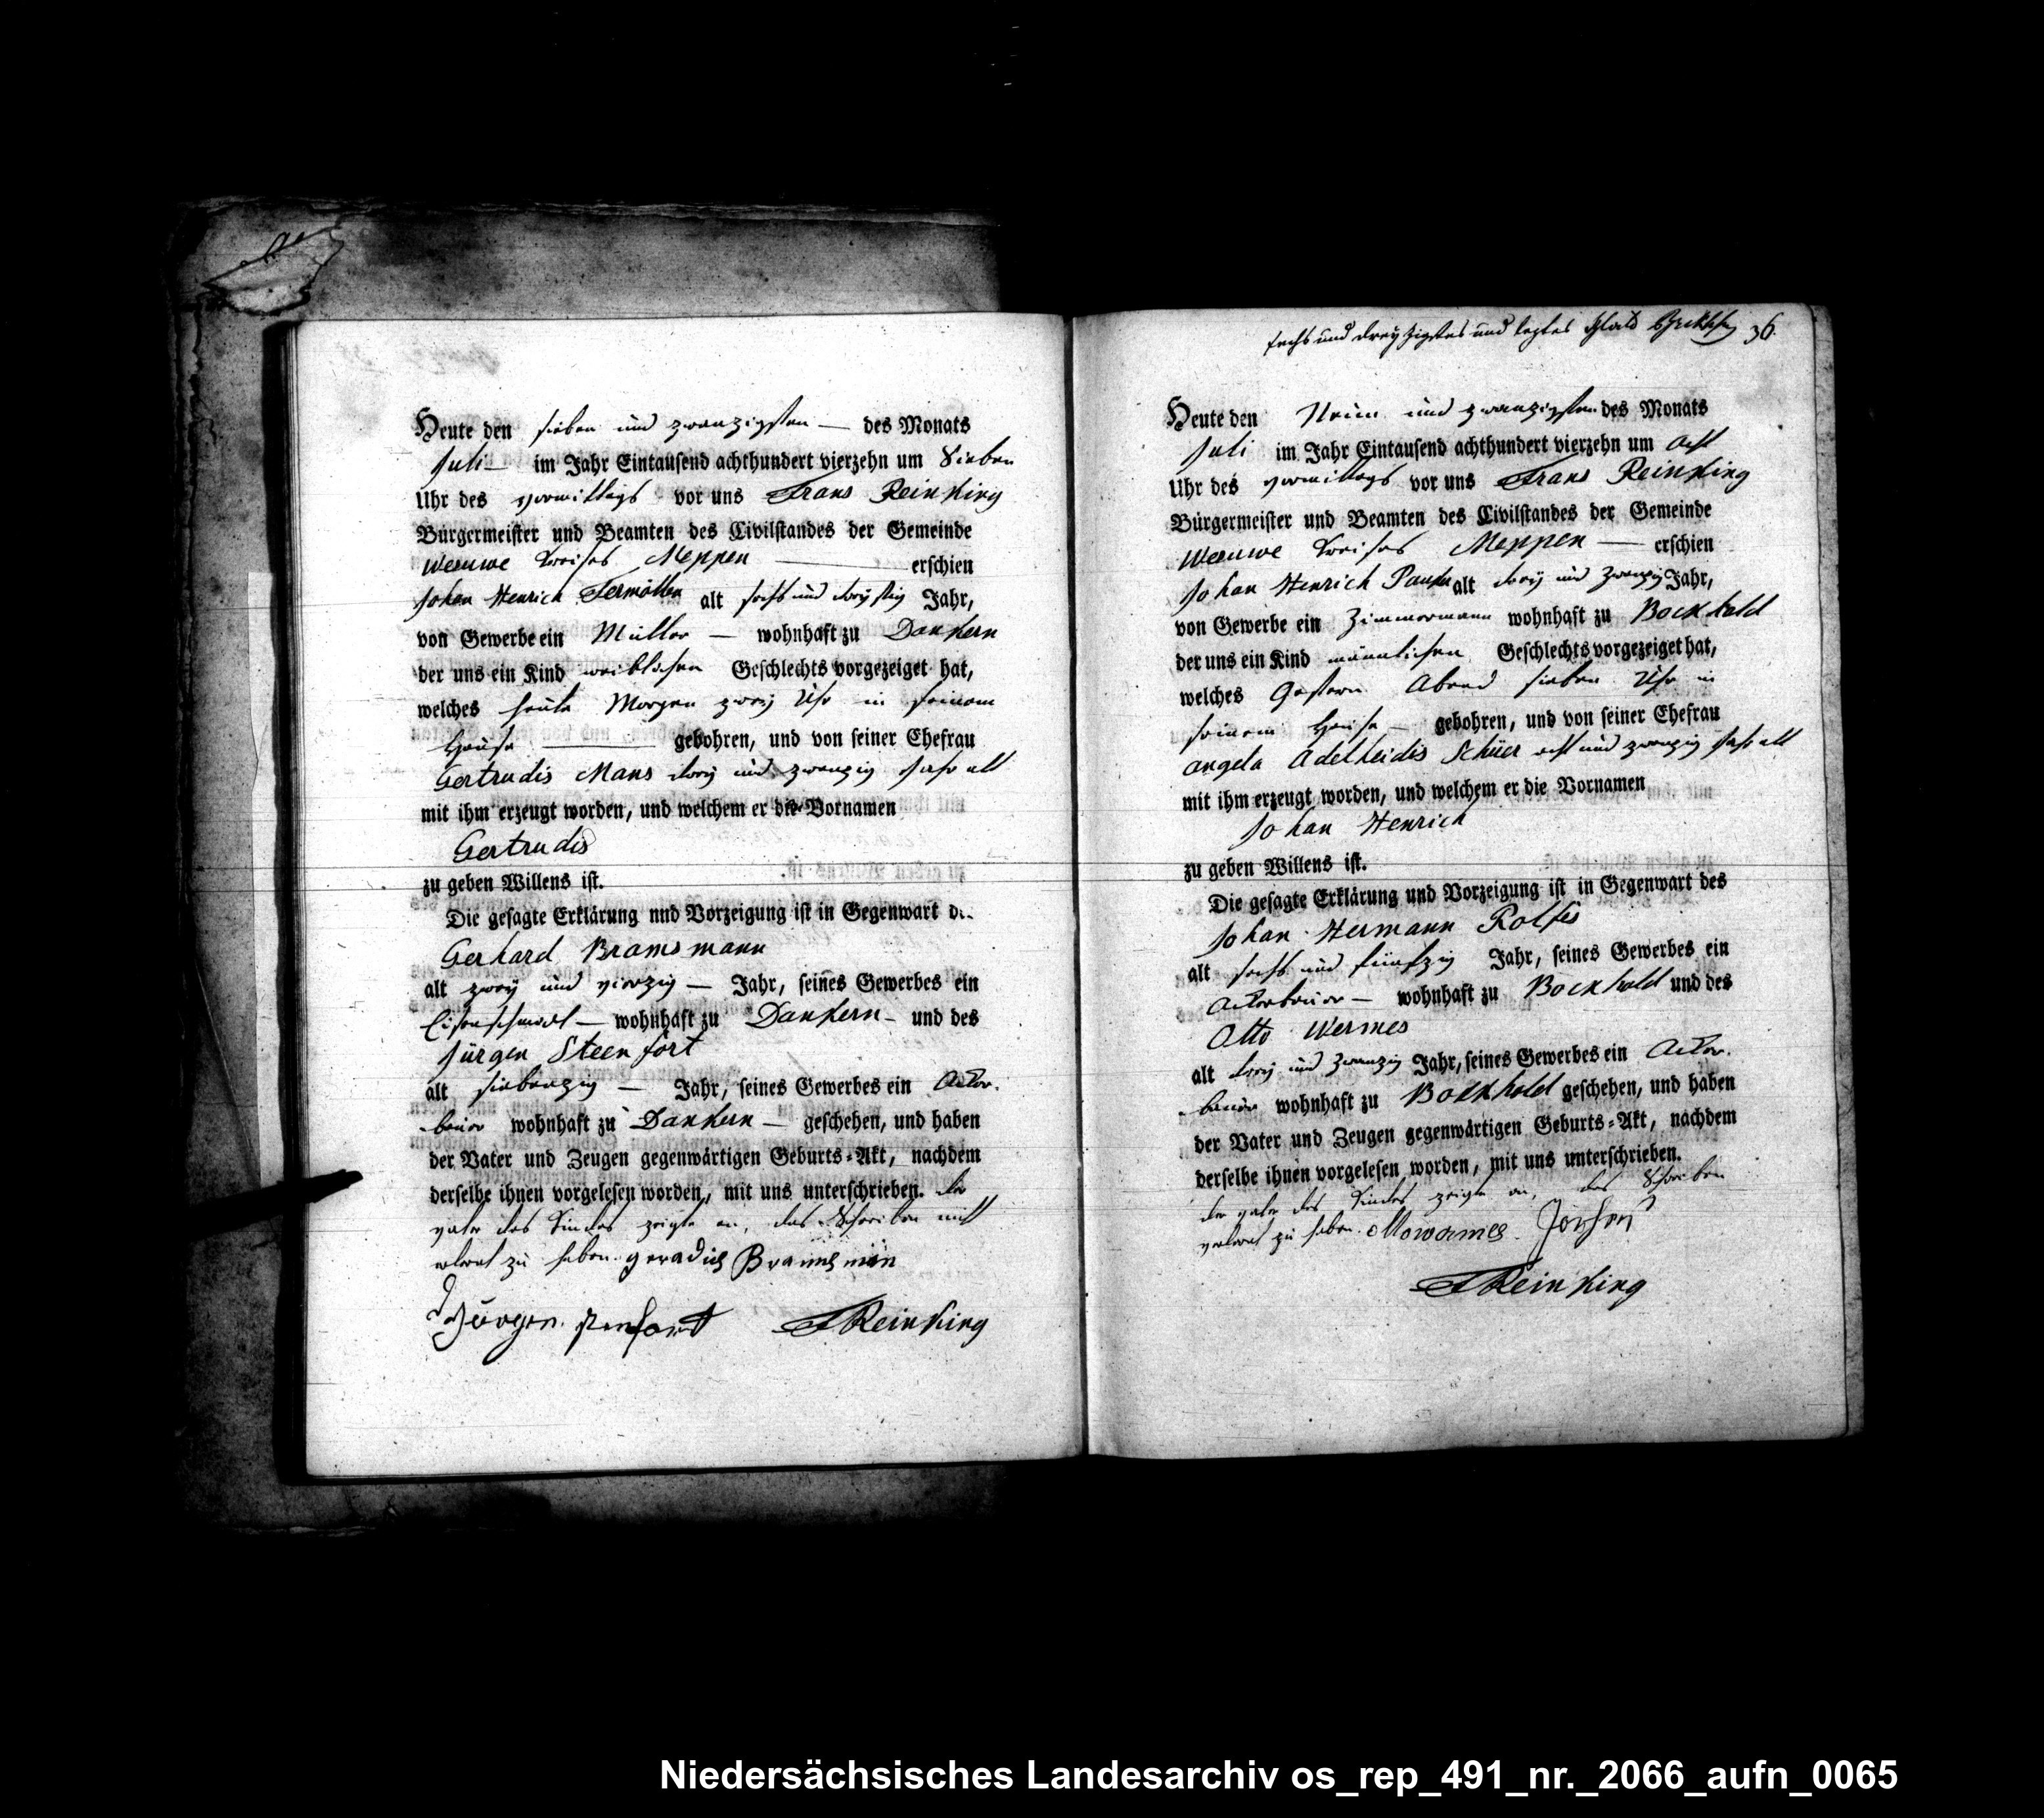 Heute den sieben und zwanzigsten — des Monats
Juli — im Jahr Eintausend achthundert vierzehn um Sieben
Uhr des vormittags vor uns Frans Reinking
Bürgermeister und Beamten des Civilstandes der Gemeinde
Wesuwe Kreises Meppen — erschien
Johan Henrich Termöllen alt sechs und dreyssig Jahr,
von Gewerbe ein Müller — wohnhaft zu Dankern
der uns ein Kind weiblichen Geschlechts vorgezeiget hat,
welches heute Morgen zwey Uhr in seinem
Hause — gebohren, und von seiner Ehefrau
Gertrudis Mans drey und zwanzig Jahr alt
mit ihm erzeugt worden, und welchem er die Vornamen
Gertrudis
zu geben Willens ist.
Die gesagte Erklärung nnd Vorzeigung ist in Gegenwart des
Gerhard Bramsmann
alt zwey und vierzig — Jahr, seines Gewerbes ein
Eisenschmidt — wohnhaft zu Dankern — und des
Jürgen Steenfort
alt siebenzig — Jahr, seines Gewerbes ein Acker-
bauer wohnhaft zu Dankern — geschehen, und haben
der Vater und Zeugen gegenwärtigen Geburts-Akt, nachdem
derselbe ihnen vorgelesen worden, mit uns unterschrieben. der
vater des Kindes zeigte an, das Schreiben nicht
erlernt zu haben. geradus Bramsmän
Jürgen stenfort FReinking
sechs und dreyzigstes und leztes Blatt 36.
Heute den Neün und zwanzigsten des Monats
Juli im Jahr Eintausend achthundert vierzehn um acht
Uhr des vormittags vor uns Frans Reinking
Bürgermeister und Beamten des Civilstandes der Gemeinde
Wesuwe Kreises Meppen — erschien
Johan Henrich alt drey und zwanzig Jahr,
von Gewerbe ein Zimmermann wohnhaft zu Bockhold
der uns ein Kind männlichen Geschlechts vorgezeiget hat,
welches Gestern Abend sieben Uhr in
seinem Hause — gebohren, und von seiner Ehefrau
angela Adelheidis Schüer acht und zwanzig Jahr alt
mit ihm erzeugt worden, und welchem er die Vornamen
Johan Henrich
zu geben Willens ist.
Die gesagte Erklärung und Vorzeigung ist in Gegenwart des
Johan Hermann Rolfes
alt sechs und fünfzig Jahr, seines Gewerbes ein
Ackerbauer — wohnhaft zu Bockhold und des
Otto Wermes
alt drey und zwanzig Jahr, seines Gewerbes ein Acker-
bauer wohnhaft zu Bockhold geschehen, und haben
der Vater und Zeugen gegenwärtigen Geburts-Akt, nachdem
derselbe ihnen vorgelesen worden, mit uns unterschrieben.
der vater des Kindes zeigte an, das Schreiben
verlernt zu haben.
FReinking
Niedersächsisches Landesarchiv os_rep_491_nr._2066_aufn_0065